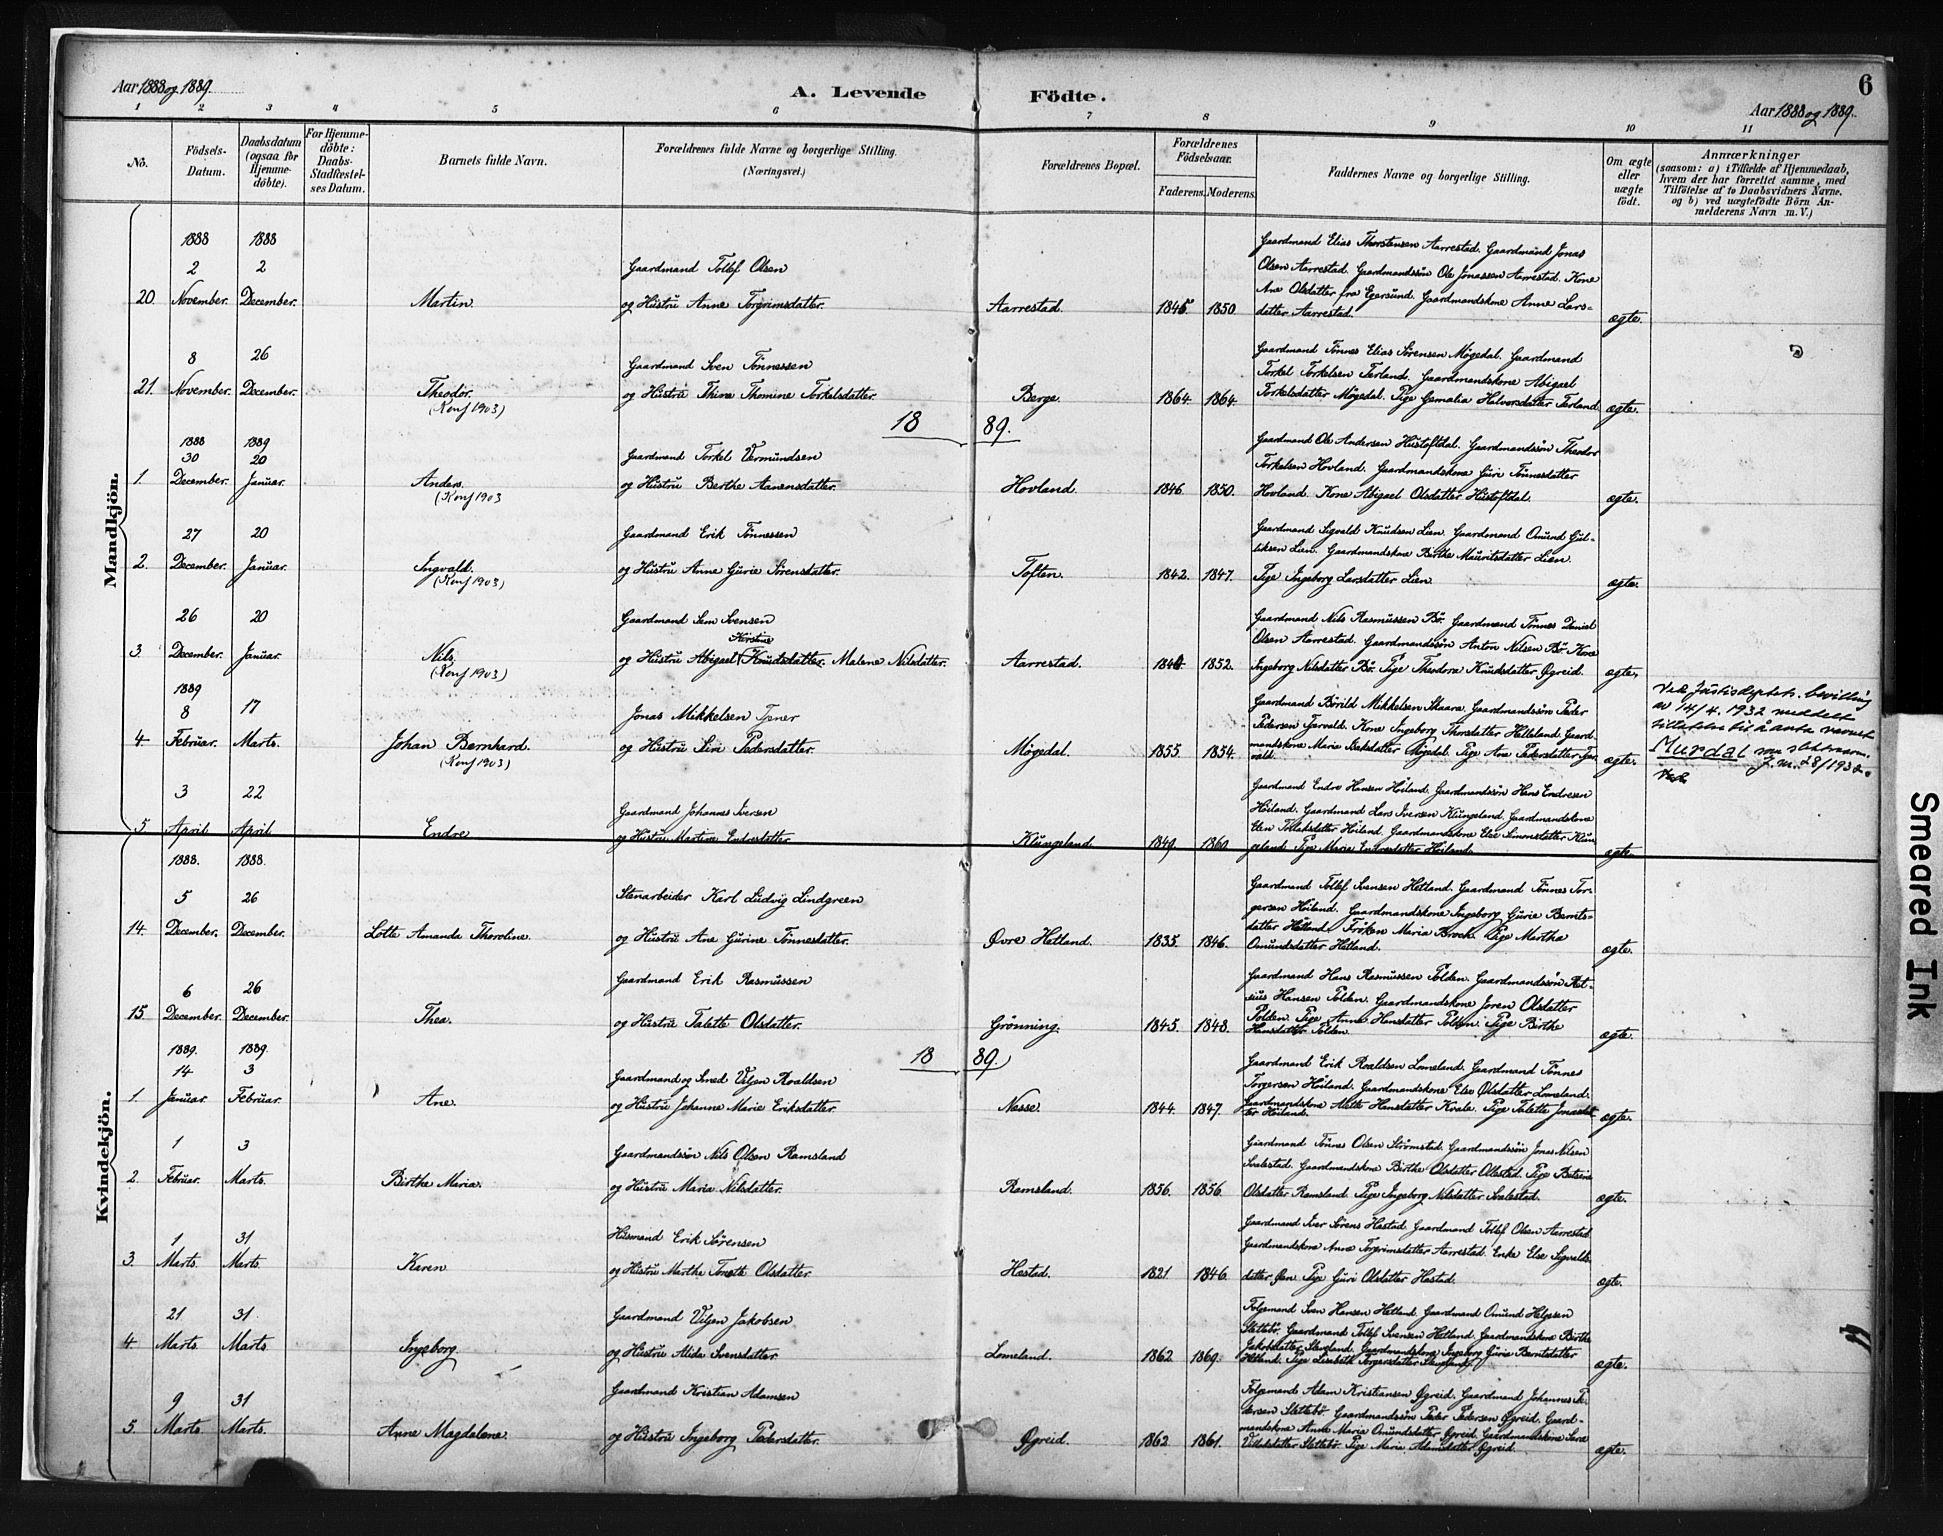 Aar 1888 og 1889.
A. Levende Födte.
6
Aar 1888 og 1889.
1 2 3 4 5 6 7 8 9 10 11
No.
Födsels-Datum.
Daabsdatum (ogsaa for Hjemme-döbte).
For Hjemme-döbte: Daabs-Stadfæstel-ses Datum.
Barnets fulde Navn.
Forældrenes fulde Navne og borgerlige Stilling.
(Næringsvei.)
Forældrenes Bopæl.
Forældrenes Födselsaar.
Faderens. Moderens.
Faddernes Navne og borgerlige Stilling.
Om ægte eller uægte födt.
Anmærkninger
(saasom: a) i Tilfælde af Hjemmedaab, hvem der har forrettet samme, med Tilföielse af to Daabsvidners Navne. og b) ved uægtefödte Börn An-melderens Navn m. V.)
Mandkjön.
1888 1888
2 2 Gaardmand Tollef Olsen
20. November. December. Martin. og Hustru Anne Torgrimsdatter. Aarrestad. 1845 1850 ægte.
Gaardmand Elias Thorstensen Aarrestad. Gaardmand Jonas
Olsen Aarrestad. Gaardmandssön Ole Jonassen Aarrestad. Kone
Ane Olsdatter fra Egersund. Gaardmandskone Anne Lars-
datter Aarrestad.
8 26 Gaardmand Sven Tönnessen
21. November. December. Theodor. og Hustru Thine Thomine Torkelsdatter. Berge. 1864. 1864. ægte.
(Konf 1903)
Gaardmand Tönnes Elias Sörensen Mögedal. Gaardmand
Torkel Torkelsen Terland. Gaardmandskone Abigael
Torkelsdatter Mögedal. Pige Gemalia Halvorsdatter Terland.
18 89.
1888 1889
30 20 Gaardmand Torkel Vermundsen
1. December. Januar. Anders. og Hustru Berthe Aanensdatter. Hovland. 1846 1850. ægte.
(Konf 1903
Gaardmand Ole Andersen Hustoftdal. Gaardmandssön Theodor
Torkelsen Hovland. Gaardmandskone Guri Tönnesdatter
Hovland. Kone Abigael Olsdatter Hustoftdal.
27 20 Gaardmand Erik Tönnessen
2. December. Januar. Ingvald. og Hustru Anne Gurie Sörensdatter. Toften. 1842. 1847. ægte.
(Konf 1903)
Gaardmand Sigvald Knudsen Lien. Gaardmand Omund Gul-
liksen Lien. Gaardmandskone Birthe Mauritsdatter Lien.
Pige Ingeborg Larsdatter Lien.
26 20 Gaardmand Sem Svensen
Kirstine
3. December. Januar. Nils. og Hustru Abigael Knudsdatter. Malene Nilsdatter. Aarrestad. 1852. ægte.
(Konf 1903)
Gaardmand Nils Rasmussen Bö. Gaardmand Tönnes Daniel
Olsen Aarrestad. Gaardmandssön Anton Nilsen Bö. Kone
Ingeborg Nilsdatter Bö. Pige Theodora Knudsdatter Øgreid.
1889
8 17 Jonas Mikkelsen Tjener
4. Februar. Marts. Johan Bernhard. og Hustru Siri Pedersdatter. Mögedal. 1855 1854. ægte.
(Konf 1903)
Gaardmand Börild Mikkelsen Skaara. Gaardmandssön Peder
Pedersen Tarvald. Kone Ingeborg Thorsdatter Helleland. Gaard-
mandskone Marie Mögedal. Pige Ane Pedersdatter Tar-
vald.
Ved Justisdeptets. bevilling
av 14/4. 1932 meddelt
tillatelse til å anta navnet
Murdal som slektsnavn.
J. nr. 28/1932.
3 22 Gaardmand Johannes Iversen
5 April April Endre og Hustru Martine Endresdatter Klungeland. 1849. 1860. ægte.
Gaardmand Endre Hansen Höiland. Gaardmandssön Hans Endresen
Höiland. Gaardmand Lars Iversen Klungeland. Gaardmandskone
Elen Höiland. Gaardmandskone Else Simonsdatter Klun-
geland. Pige Marie Endresdatter Höiland.
Kvindekjön.
1888. 1888.
5 26 Stenarbeider Karl Ludvig Lindgreen
14. December. December. Lotte Amanda Thoroline. og Hustru Ane Gurine Tönnesdatter. Øvre Hetland. 1835. 1846. ægte.
Gaardmand Tollef Svensen Hetland. Gaardmand Tönnes Tor-
gersen Höiland. Gaardmandskone Ingeborg Gurie Bernts-
datter Hetland. Fröken Maria Brock. Pige Martha
Omundsdatter Hetland.
6 26 Gaardmand Erik Rasmussen
15. December. December. Thea. og Hustru Talette Olsdatter. Grönning. 1845. 1848. ægte.
Gaardmand Hans Rasmussen Polden. Gaardmandssön
Hansen Polden. Gaardmandskone Joren Olsdatter
Polden. Pige Anne Hansdatter Polden. Pige Birthe
Hansdatter Polden.
1889. 1889. 18 89.
14 3 Gaardmand og Smed Viljen Roaldsen
1. Januar. Februar. Ane. og Hustru Johanne Marie Eriksdatter. Nesse. 1844. 1847. ægte.
Gaardmand Erik Roaldsen Lomeland. Gaardmand Tönnes
Torgersen Höiland. Gaardmandskone Else Olsdatter Lomeland.
Gaardmandskone Mette Hansdatter Kvale. Pige Talette Jonasdat-
ter Höiland.
1 3 Gaardmandssön Nils Olsen Ramsland
2. Februar. Marts. Birthe Maria. og Hustru Maria Nilsdatter. Ramsland. 1856. 1856. ægte.
Gaardmand Tönnes Olsen Strömstad. Gaardmandssön Jonas Nilsen
Svalestad. Gaardmandskone Birthe Olsdatter Ollestad. Pige Batsine
Olsdatter Ramsland. Pige Ingeborg Nilsdatter Svalestad.
1 31 Husmand Erik Sörensen
3. Marts. Marts. Karen og Hustru Marthe Tonette Olsdatter. Hestad. 1821 1846. ægte.
Gaardmand Iver Sörens Hestad. Gaardmand Tollef Olsen Aarrestad.
Gaardmandskone Anne Torgrimsdatter Aarrestad. Enke Else Sigvalds-
datter Øen. Pige Guri Olsdatter Hestad.
21 31 Gaardmand Viljen Jakobsen
4. Marts. Marts. Ingeborg og Hustru Alida Svensdatter. Lomeland. 1862. 1869. ægte.
Folgemand Sven Hansen Hetland. Gaardmand Omund Helgesen
Slettebö. Gaardmand Tollef Svensen Hetland. Gaardmandskone Birthe
Jakobsdatter. Gaardmandskone Ingeborg Gurie Berntsdatter
Hetland. Pige Lisabeth Torgersdatter
9 31 Gaardmand Kristian Adamsen
5. Marts. Marts. Anne Magdalene. og Hustru Ingeborg Pedersdatter. Øgreid. 1862. 1861. ægte.
Folgemand Adam Kristiansen Øgreid. Gaardmand Johannes Pe-
dersen Slettebö. Gaardmandssön Peder Pedersen Øgreid. Gaard-
mandskone Anne Marie Omundsdatter Øgreid. Gaardmandskone Sara
Slettebö. Pige Marie Adamsdatter Øgreid.
Smeared Ink